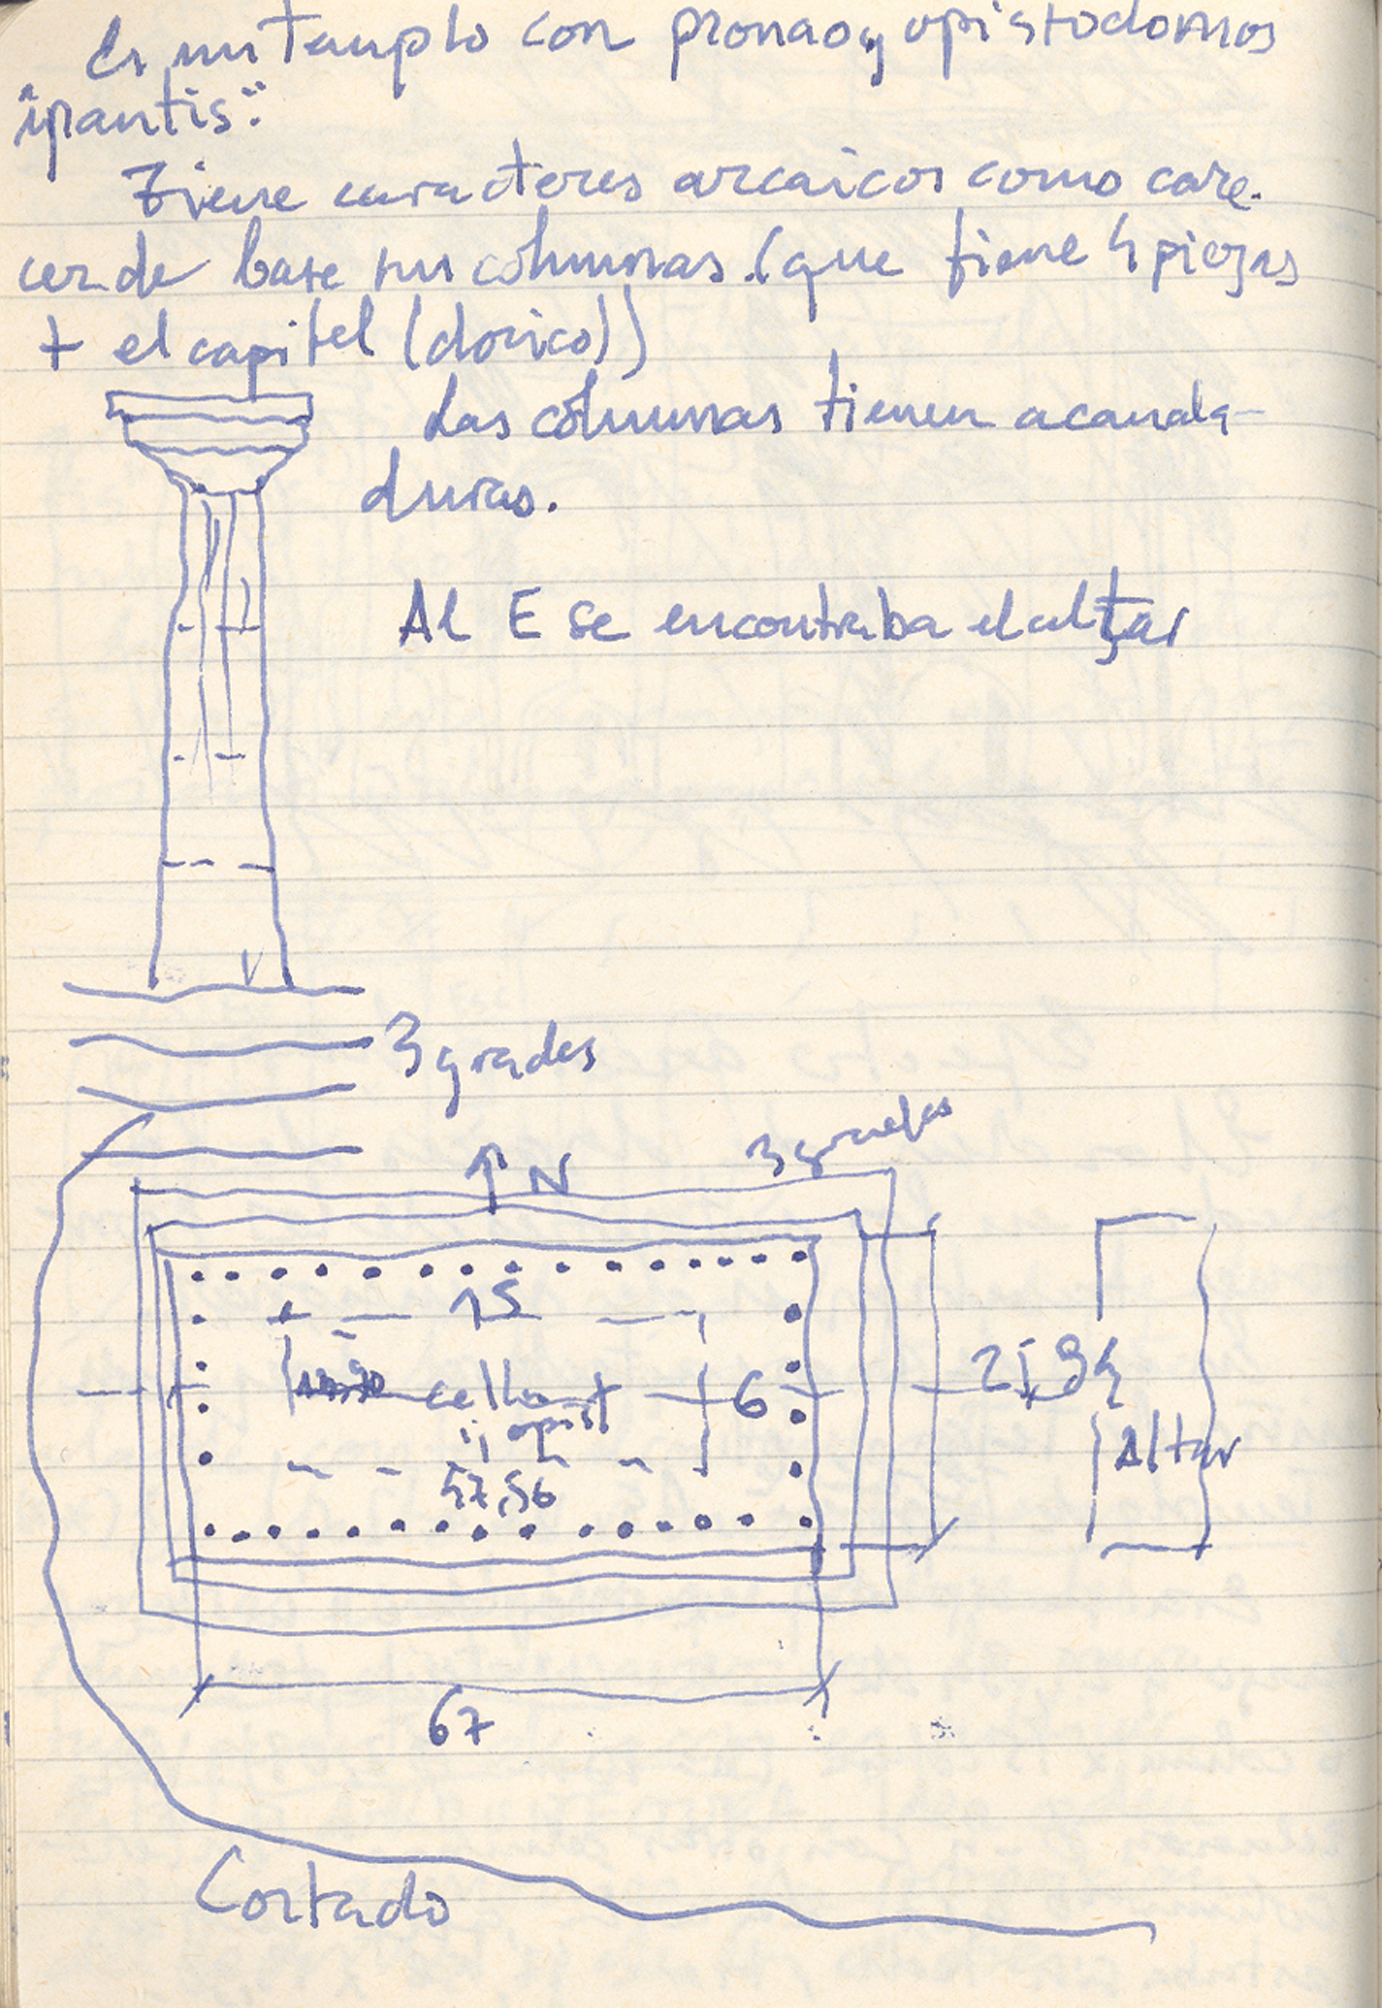 Es un Templo con pronao y opistodomos
"inantis".
Tiene caracteres arcaicos como care-
cer de base sus columnas. (que tiene 4 piezas
+ el capitel (dorico))
Las columnas tienen acanala-
duras.
Al E se encontraba el altar
3 gradas
N
3 gradas
15
cella
6
opist
57,56
67
Altar
Cortado